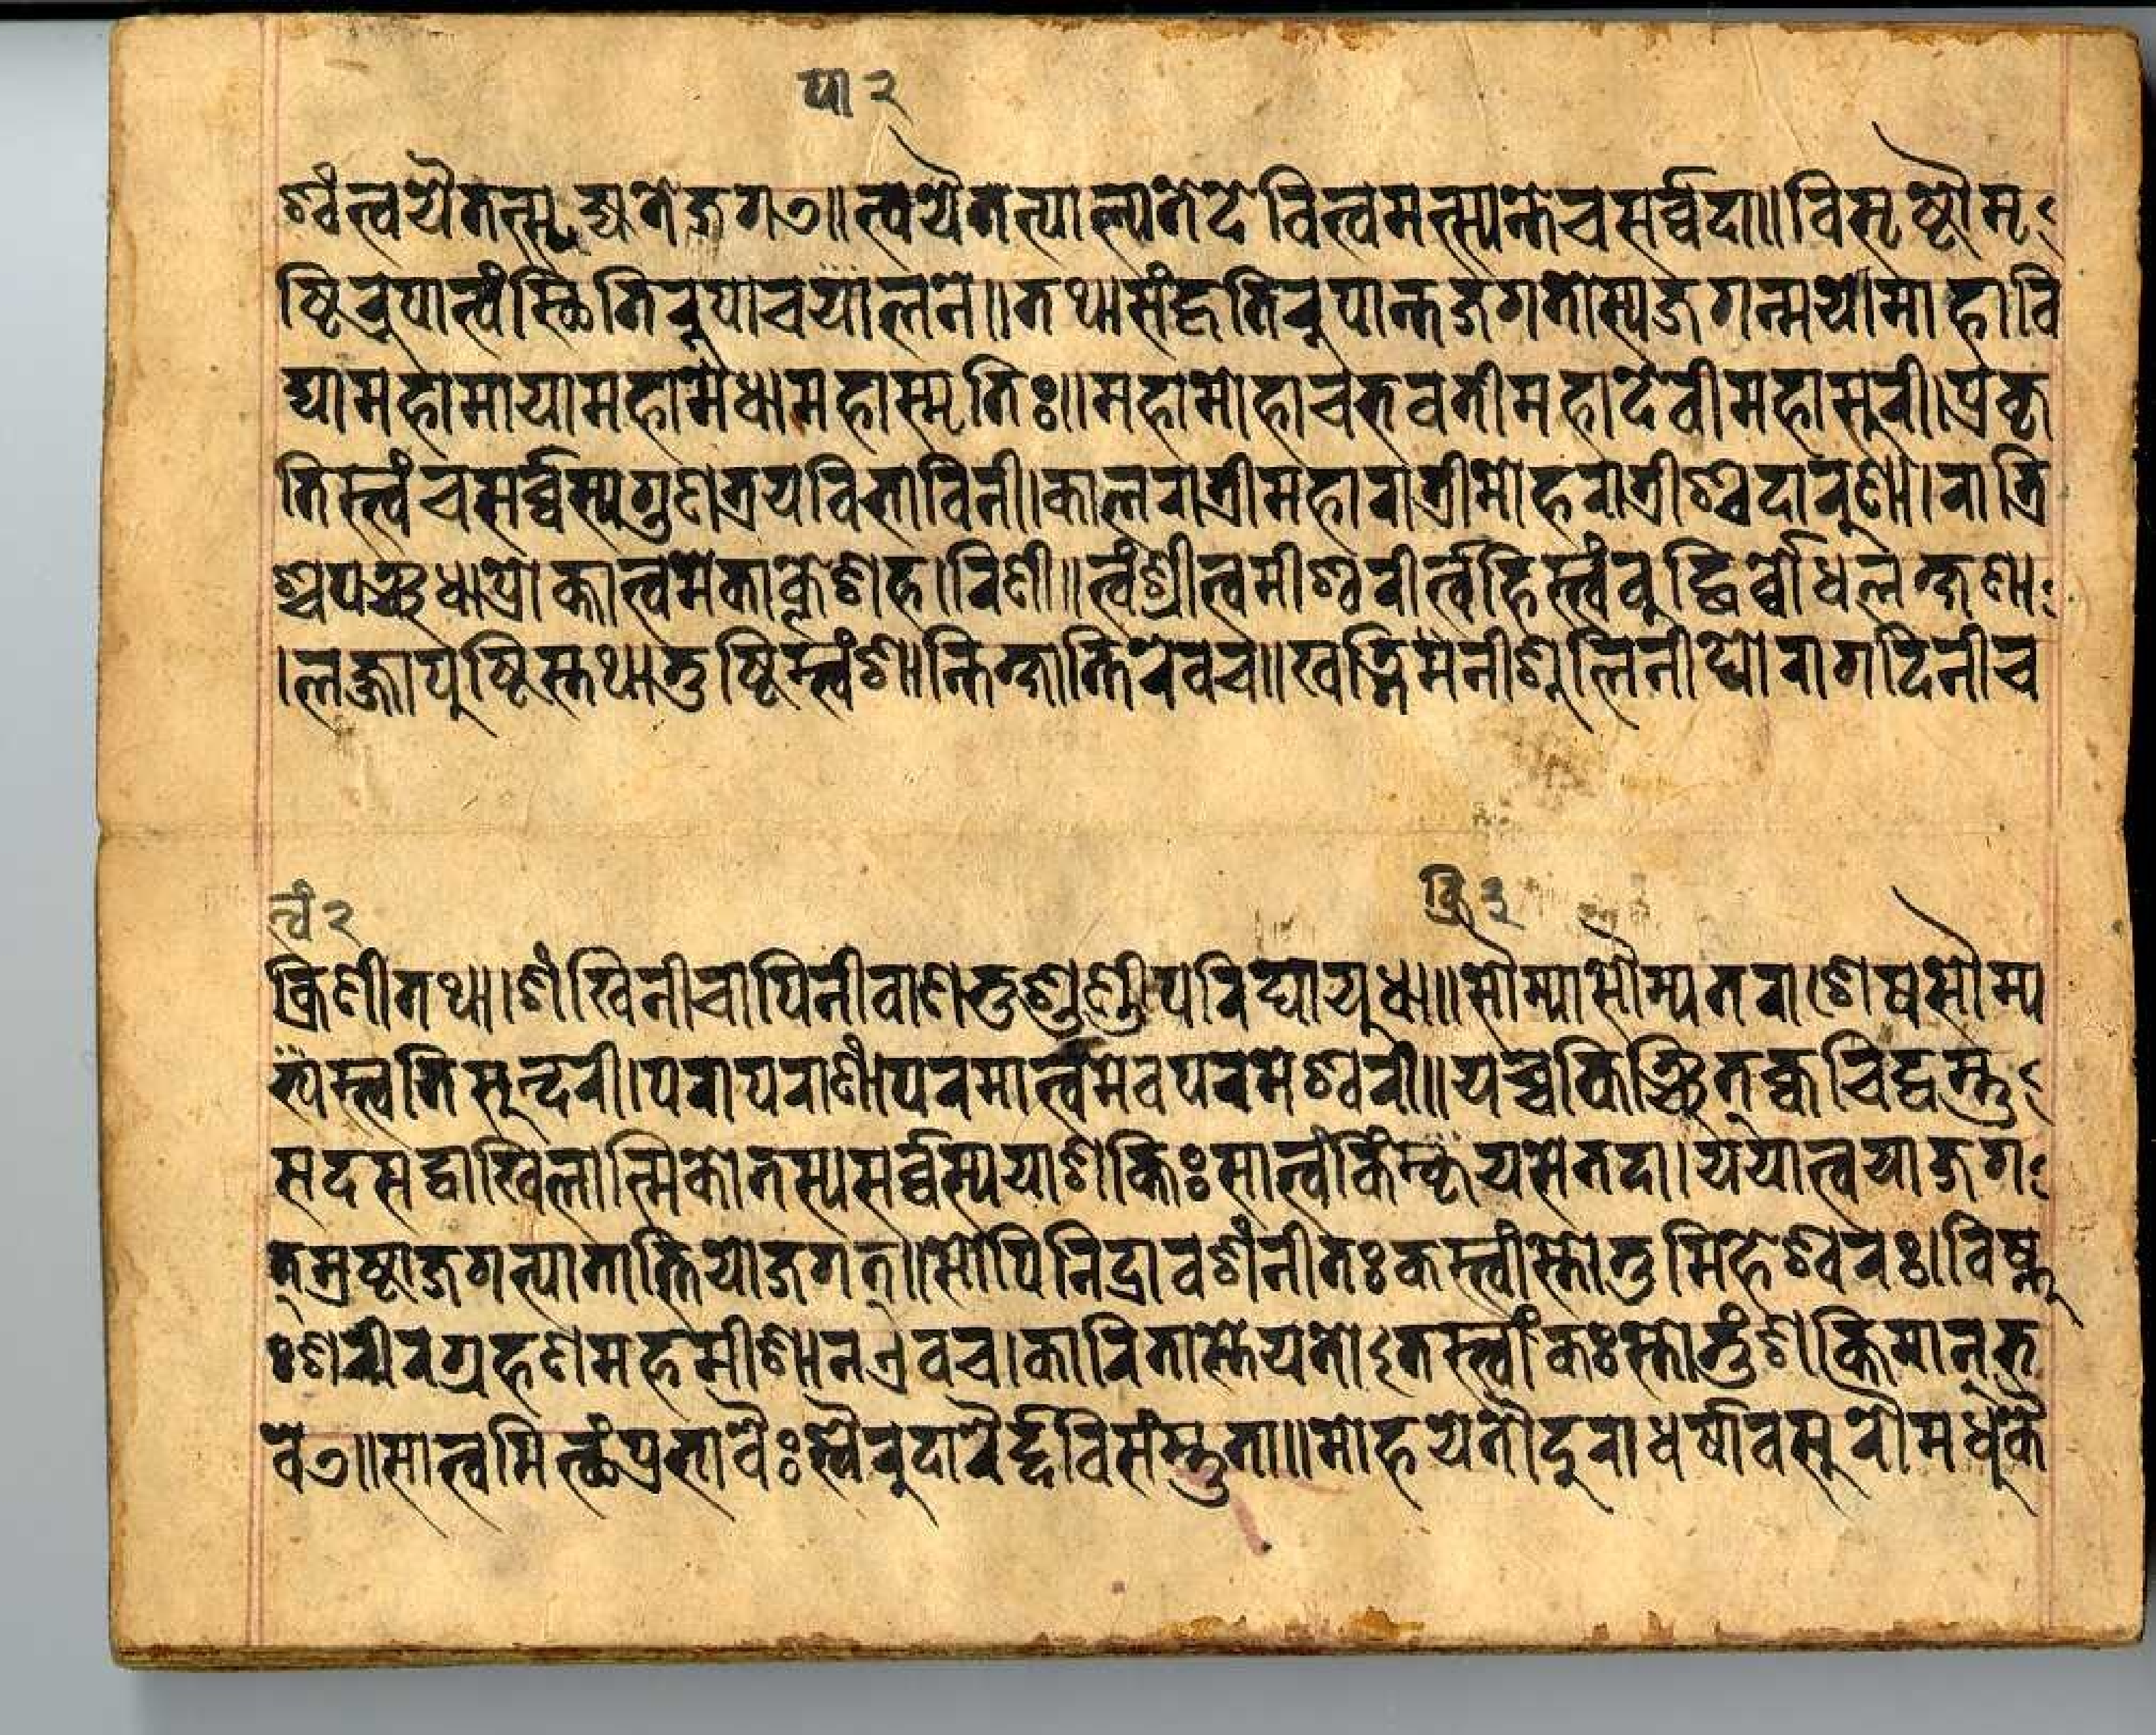 पा २
श्वंत्वयैतत्सृज्यतेजगत्॥त्वयैतत्पाल्यतेदेवित्वमत्स्यन्तेचसर्व्वदा॥विसृष्टौसृ
ष्टिरुपात्वंस्थितिरुपाचयालने॥तथासंहृतिरुपान्तजगतोस्यजगन्मये।माहावि
द्यामहामायामहामेधामहास्मृतिः॥महामोहाचभवतीमहादेवीमहासुरी।प्रकृ
तिस्त्वंचसर्व्वस्यगुणत्रयविभाविनी।कालरात्रीमहारात्रीमोहरात्रीश्चदारुणा।रात्रि
श्चपञ्चधाप्रोक्तात्वमेकाक्लेशहारिणी॥त्वंश्रीत्वमीश्वरीर्त्वंह्रिस्त्वंवुद्धिर्व्वोधलक्षणा
।लज्जापुष्टिस्तथातुष्टिस्त्वंशान्तिक्षान्तिरेवच॥खड्गिमनीशूलिनीघोरागदिनीच
त्वं २
क्रिणीतथा।शंखिनीचापिनीवाणभुशुण्डीपरिघायुधा॥सौम्यासौम्यतराशेषसौम्य
भ्यस्त्वतिसुन्दरी।परापराणांपरमात्वमेवपरमेश्वरी॥यच्चकिञ्चित्क्वचिद्वस्तु
सदसद्वाखिलात्मिकोतस्यसर्व्वस्ययाशक्तिःसात्वंकिंस्तूयसेतदा।ययात्वयाजग
त्स्रष्टाजगत्पातात्तियोजगत्॥सोपिनिद्रावशंनीतःकस्त्वांस्तोतुमिहेश्वरः।विष्णु
ःशरीरग्रहणमहमीशानएवच।कारितास्तेयतोऽतस्त्वांकःस्तोतुंशक्तिमान्भ
वेत्॥सात्वमित्थंप्रभावैःस्वैरुदारैर्द्देविसंस्तुता॥मोहयेतौदुराधर्षावसुरौमधुकै